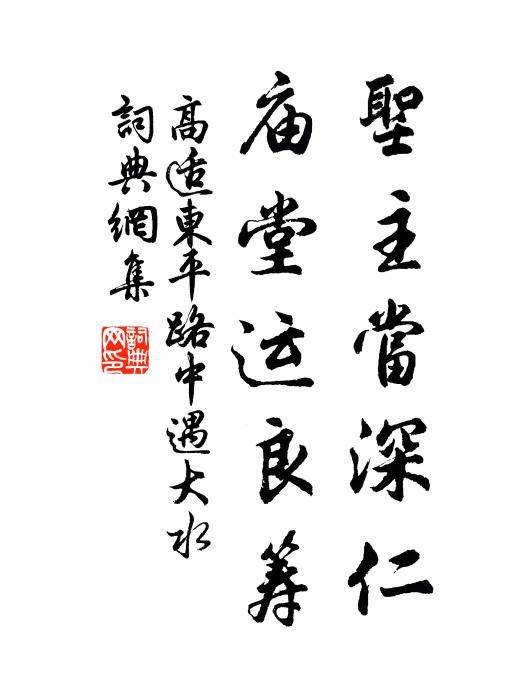 聖主當深仁
庙堂运良筹
高适東平路中遇大水
詞典網集
詞典網印